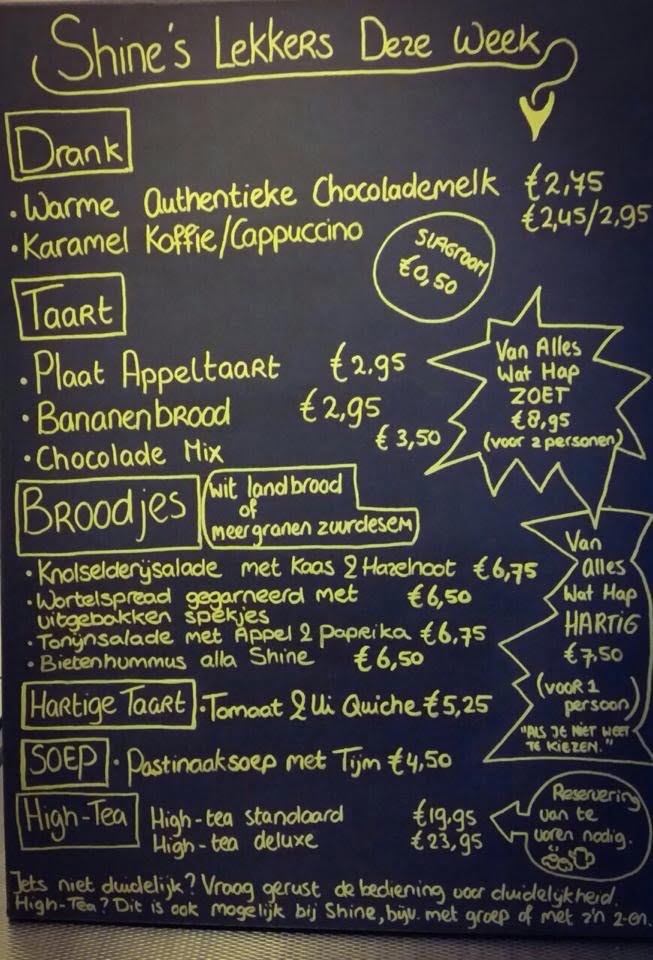 Shine's Lekkers Deze Week
Drank
• Warme Authentieke Chocolademelk €2,75
• Karamel Koffie/Cappuccino €2,45/2,95
Slagroom
€0,50
Taart
• Plaat Appeltaart €2.95
• Bananenbrood €2,95
• Chocolade Mix €3,50
Van Alles
Wat Hap
ZOET
€8,95
(voor 2 personen)
Broodjes
wit landbrood
of
meergranen zuurdesem
• Knolselderijsalade met Kaas & Hazelnoot €6,75
• Wortelspread gegarneerd met €6,50
uitgebakken spekjes
• Tonijnsalade met Appel & Paprika €6,75
• Bietenhummus alla Shine €6,50
Van
Alles
Wat Hap
HARTIG
€7,50
(voor 1
persoon)
"ALS JE NIET WEET
TE KIEZEN."
Hartige Taart • Tomaat & Ui Quiche €5,25
SOEP • Pastinaaksoep met Tijm €4,50
High-Tea
High-tea standaard €19,95
High-tea deluxe €23,95
Reservering
van te
voren nodig.
Iets niet duidelijk? Vraag gerust de bediening voor duidelijkheid.
High-Tea? Dit is ook mogelijk bij Shine, bijv. met groep of met z'n 2-en.